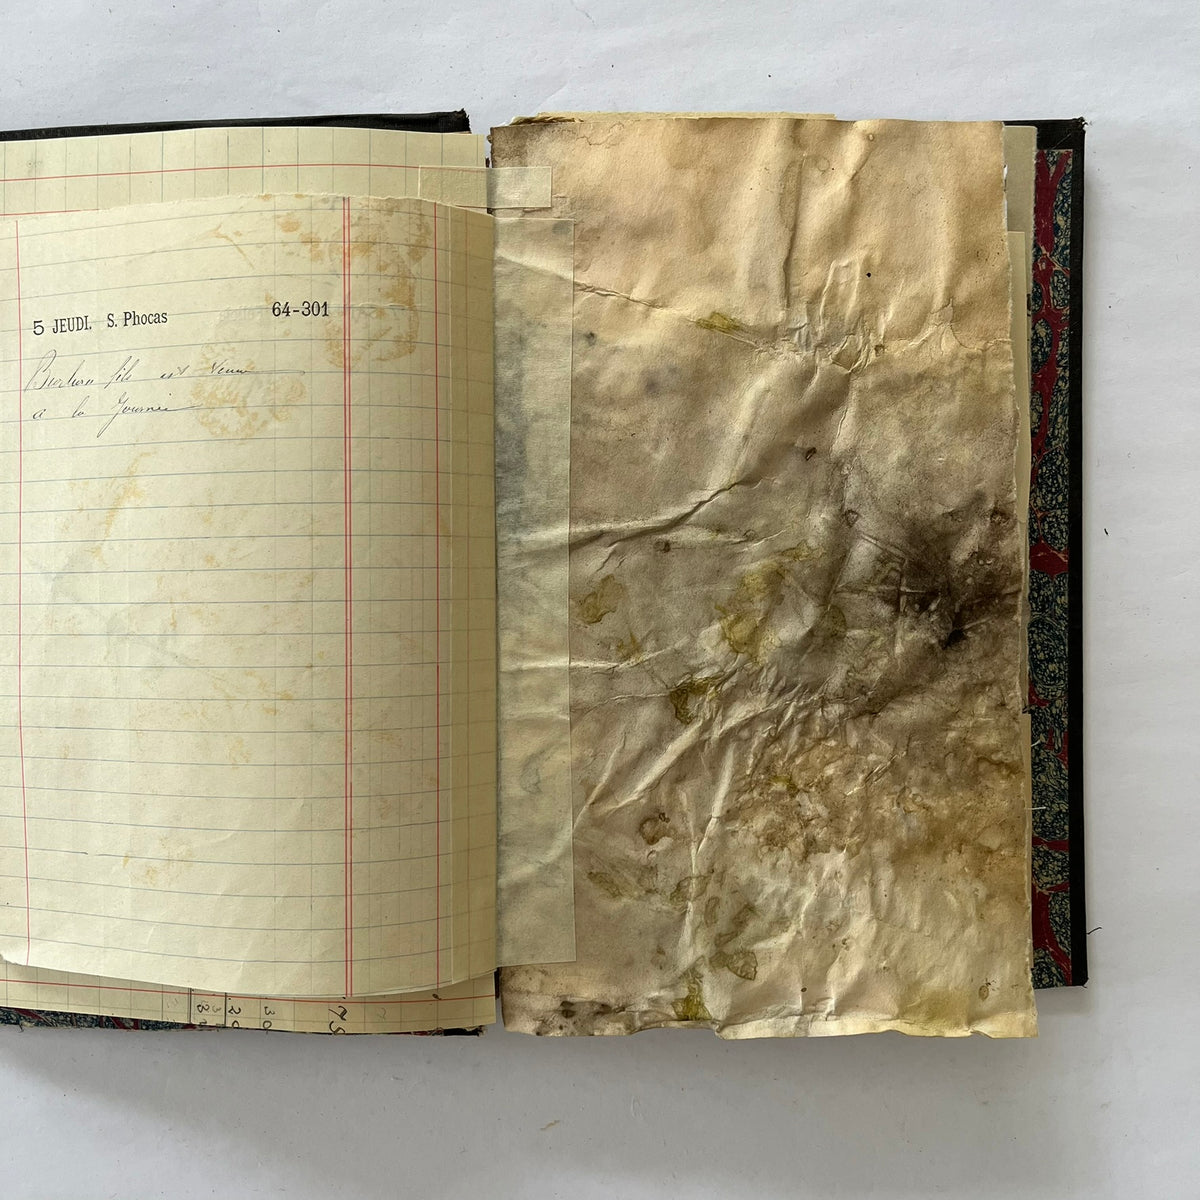 5 JEUDI. S. Phocas 64-301
fils est venu
a la Journée